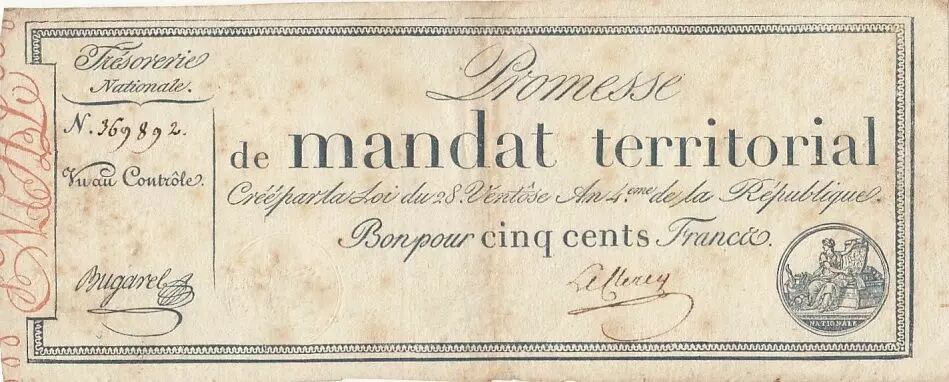 Trésorerie
Nationale.
N. 369892.
Vu au Contrôle.
Bugarel
Promesse
de mandat territorial
Créé par la Loi du 28. Ventôse An 4.ème de la République.
Bon pour cinq cents Francs.
NATIONALE